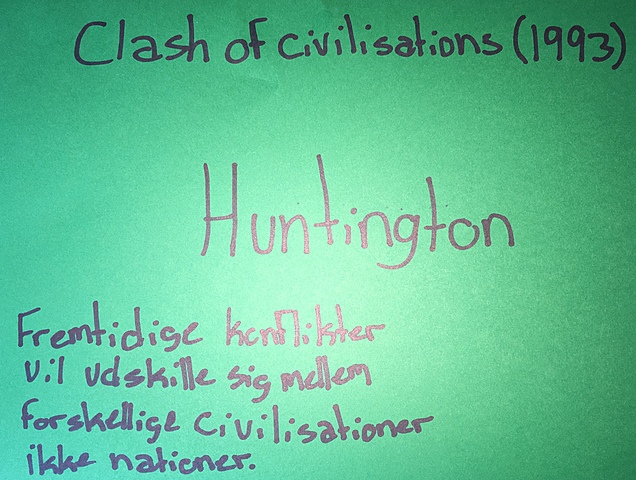 Clash of civilisations (1993)
Huntington
Fremtidige konflikter
vil udskille sig mellem
forskellige civilisationer
ikke nationer.